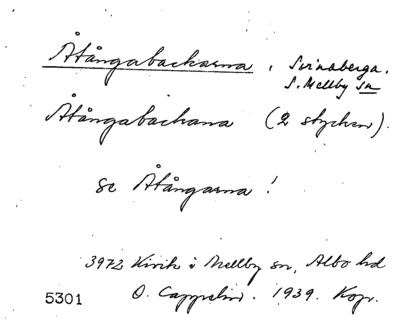 Åtångabackarna, Svinaberga.
S. Mellby sn
Åtångabackana (2 stycken).
se Åtångarna!
3972 Kivik i Mellby sn, Albo hd
5301 O. Cappelin. 1939. Kopr.